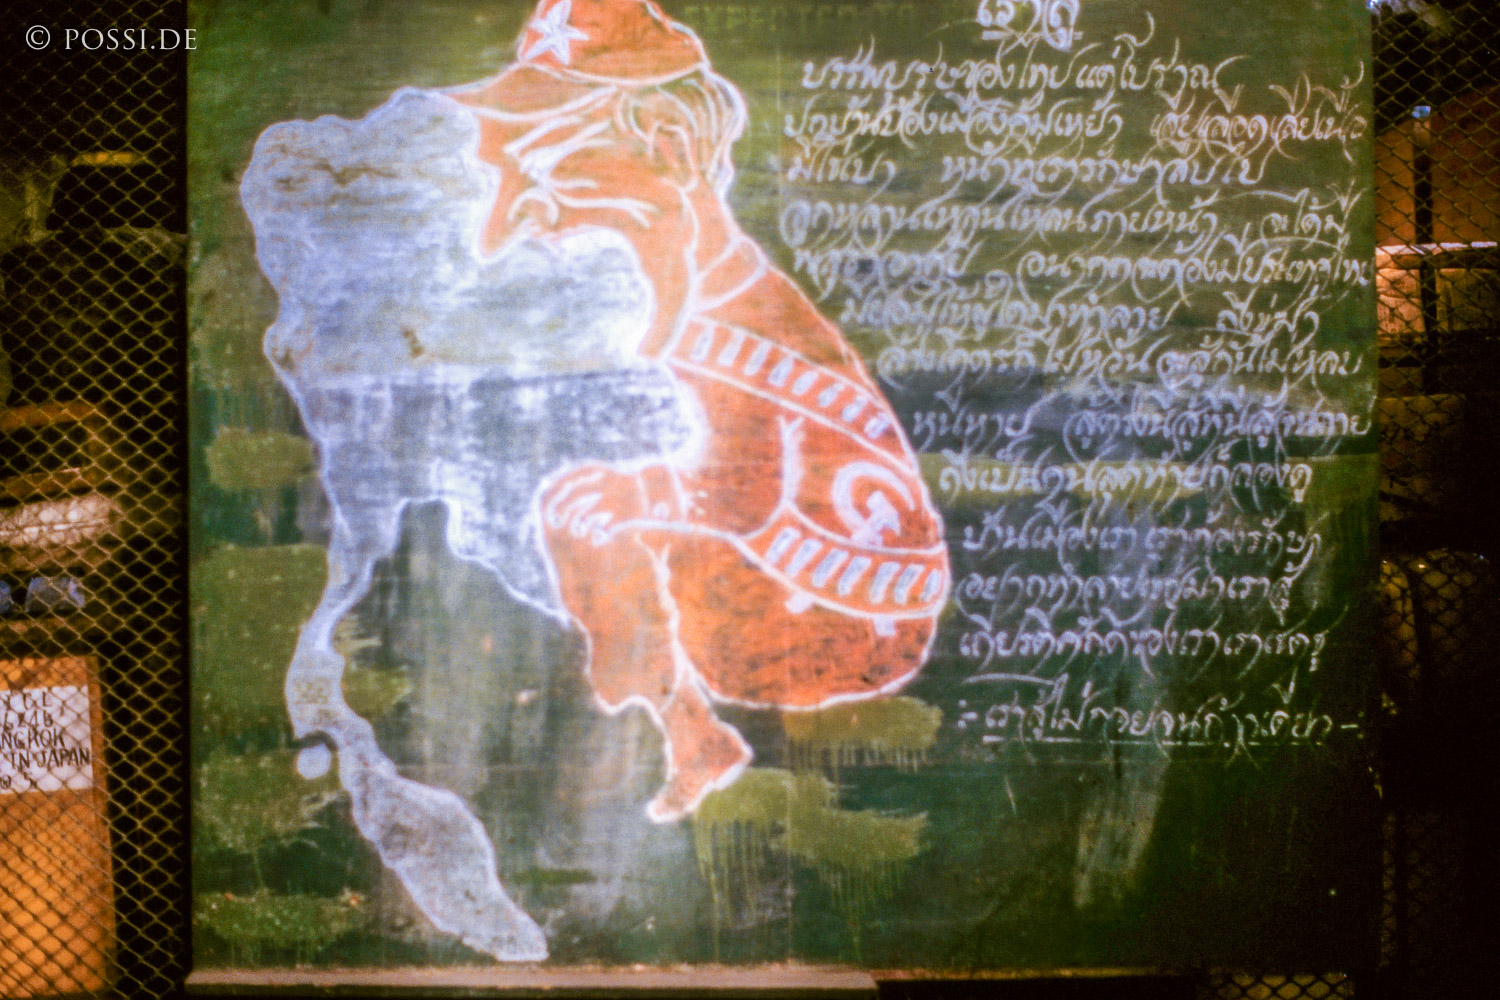 © POSSI.DE
เราสู้
บรรพบุรุษของไทยแต่โบราณ
ปกบ้านป้องเมืองคุ้มเหย้า เสียเลือดเสียเนื้อ
มิใช่เบา หน้าที่เรารักษาสืบไป
ลูกหลานเหลนโหลนภายหน้า จะได้มี
พสุธาอาศัย อนาคตจะต้องมีประเทศไทย
มิยอมให้ผู้ใดมาทำลาย ถึงขู่ฆ่า
ล้างโคตรก็ไม่หวั่น จะสู้กันไม่หลบ
หนีหาย สู้ตรงนี้สู้ที่นี่สู้จนตาย
ถึงเป็นคนสุดท้ายก็ลองดู
บ้านเมืองเรา เราต้องรักษา
อยากทำลายเชิญมาเราสู้
เกียรติศักดิ์ของเราเราเชิดชู
:- เราสู้ไม่ถอยจนก้าวเดียว -:
NGKOK
IN JAPAN